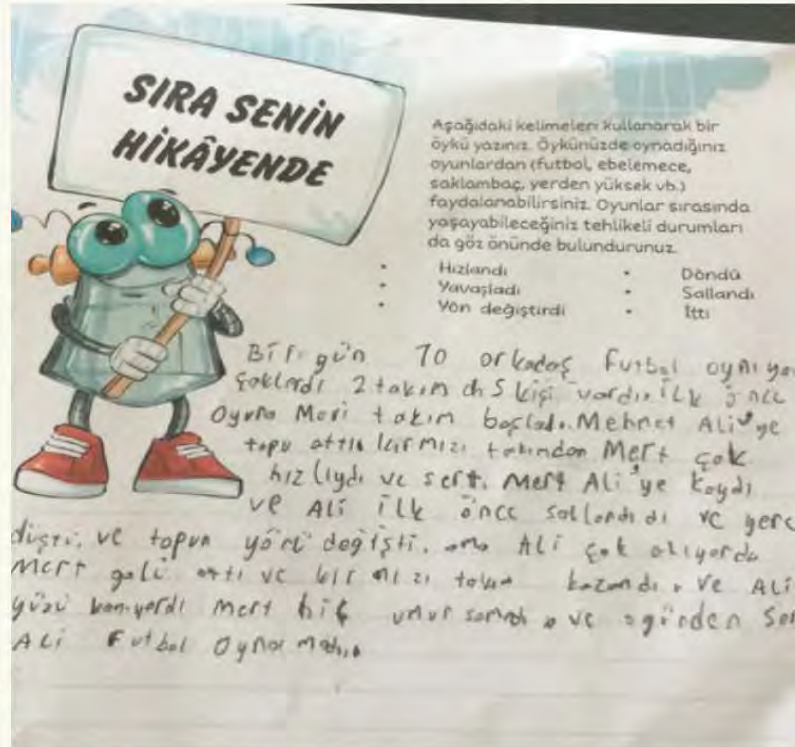 SIRA SENİN
HİKÂYENDE
Aşağıdaki kelimeleri kullanarak bir
öykü yazınız. Öykünüzde oynadığınız
oyunlardan (futbol, ebelemece,
saklambaç, yerden yüksek vb.)
faydalanabilirsiniz. Oyunlar sırasında
yaşayabileceğiniz tehlikeli durumları
da göz önünde bulundurunuz.
• Hızlandı • Döndü
• Yavaşladı • Sallandı
• Yön değiştirdi • İtti
Bir gün 10 arkadaş Futbol
2 takım 5 kişi vardı. İlk önce
Oyuna Mavi takım başladı. Mehmet Ali'ye
topu attı kırmızı takımdan Mert çok
hızlıydı ve sert. Mert Ali'ye koydı
ve Ali ilk önce ve yere
düştü. ve topun yönü değişti. ama Ali çok
Mert golü attı ve kırmızı takım kazandı. ve Ali
yüzü kanıyordu Mert hiç ve ogünden
Ali Futbol